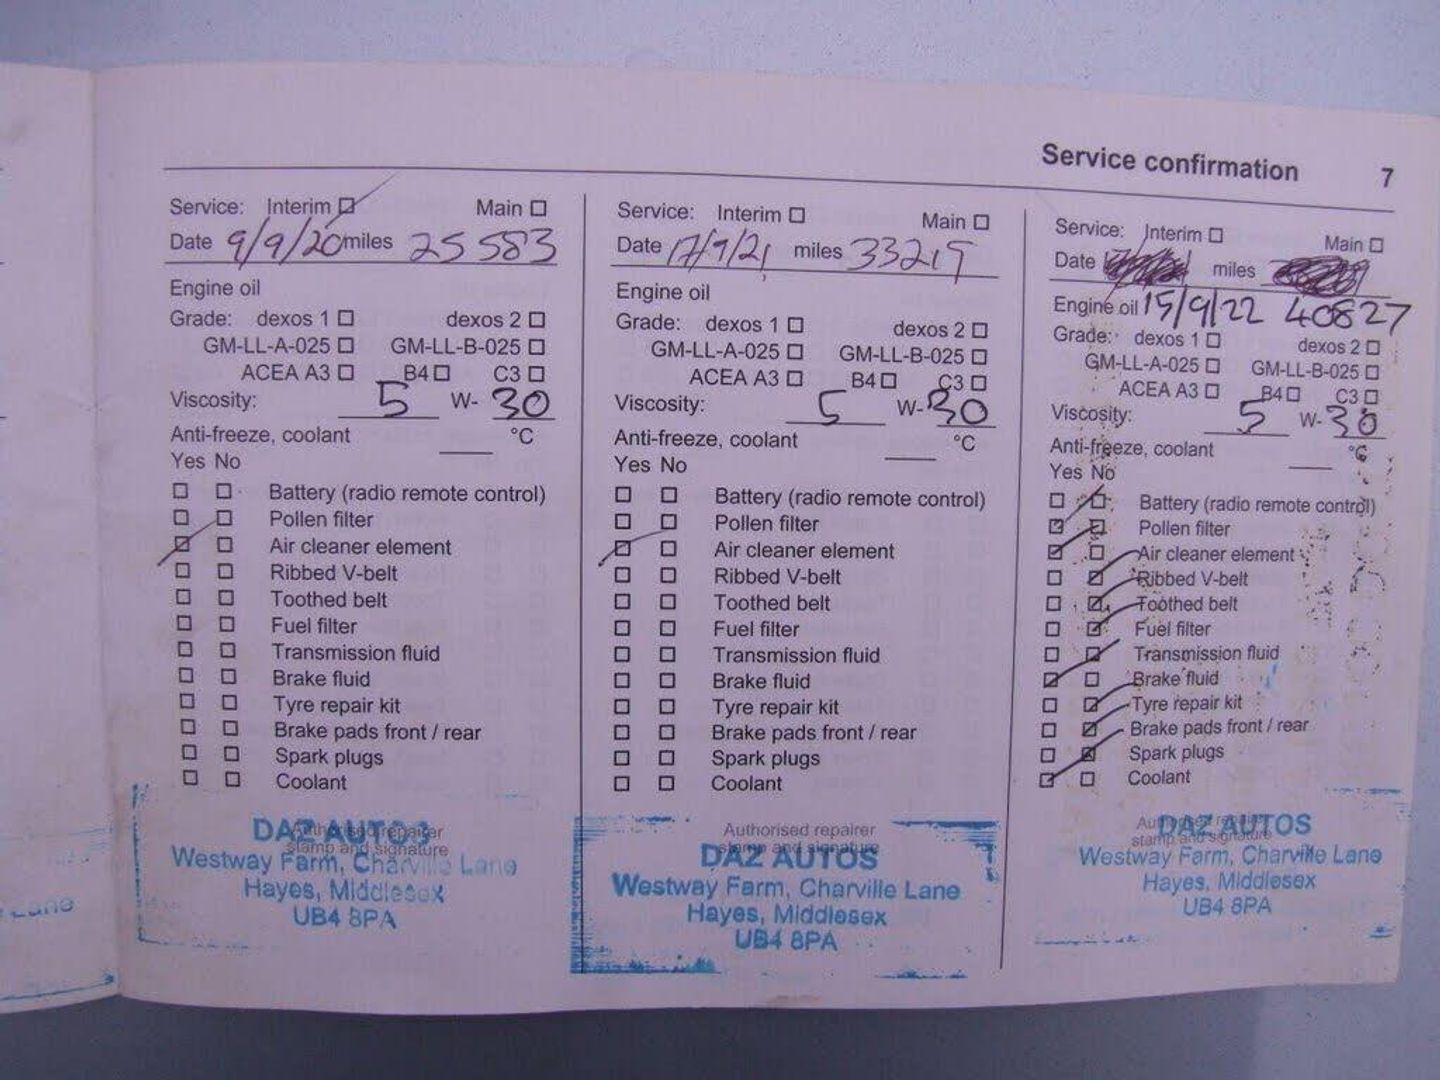 Service confirmation 7
Service: Interim ☐ Main ☐
Date 9/9/20 miles 25583
Engine oil
Grade: dexos 1 ☐ dexos 2 ☐
GM-LL-A-025 ☐ GM-LL-B-025 ☐
ACEA A3 ☐ B4 ☐ C3 ☐
Viscosity: 5 W- 30
Anti-freeze, coolant °C
Yes No
Battery (radio remote control)
Pollen filter
Air cleaner element
Ribbed V-belt
Toothed belt
Fuel filter
Transmission fluid
Brake fluid
Tyre repair kit
Brake pads front / rear
Spark plugs
Coolant
Authorised repairer
stamp and signature
DAZ AUTOS
Westway Farm, Charville Lane
Hayes, Middlesex
UB4 8PA
Service: Interim ☐ Main ☐
Date 17/9/21 miles 33219
Engine oil
Grade: dexos 1 ☐ dexos 2 ☐
GM-LL-A-025 ☐ GM-LL-B-025 ☐
ACEA A3 ☐ B4 ☐ C3 ☐
Viscosity: 5 W- 30
Anti-freeze, coolant °C
Yes No
Battery (radio remote control)
Pollen filter
Air cleaner element
Ribbed V-belt
Toothed belt
Fuel filter
Transmission fluid
Brake fluid
Tyre repair kit
Brake pads front / rear
Spark plugs
Coolant
Authorised repairer
stamp and signature
DAZ AUTOS
Westway Farm, Charville Lane
Hayes, Middlesex
UB4 8PA
Service: Interim ☐ Main ☐
Date miles
Engine oil 15/9/22 40827
Grade: dexos 1 ☐ dexos 2 ☐
GM-LL-A-025 ☐ GM-LL-B-025 ☐
ACEA A3 ☐ B4 ☐ C3 ☐
Viscosity: 5 W- 30
Anti-freeze, coolant °C
Yes No
Battery (radio remote control)
Pollen filter
Air cleaner element
Ribbed V-belt
Toothed belt
Fuel filter
Transmission fluid
Brake fluid
Tyre repair kit
Brake pads front / rear
Spark plugs
Coolant
Authorised repairer
stamp and signature
DAZ AUTOS
Westway Farm, Charville Lane
Hayes, Middlesex
UB4 8PA
Lane